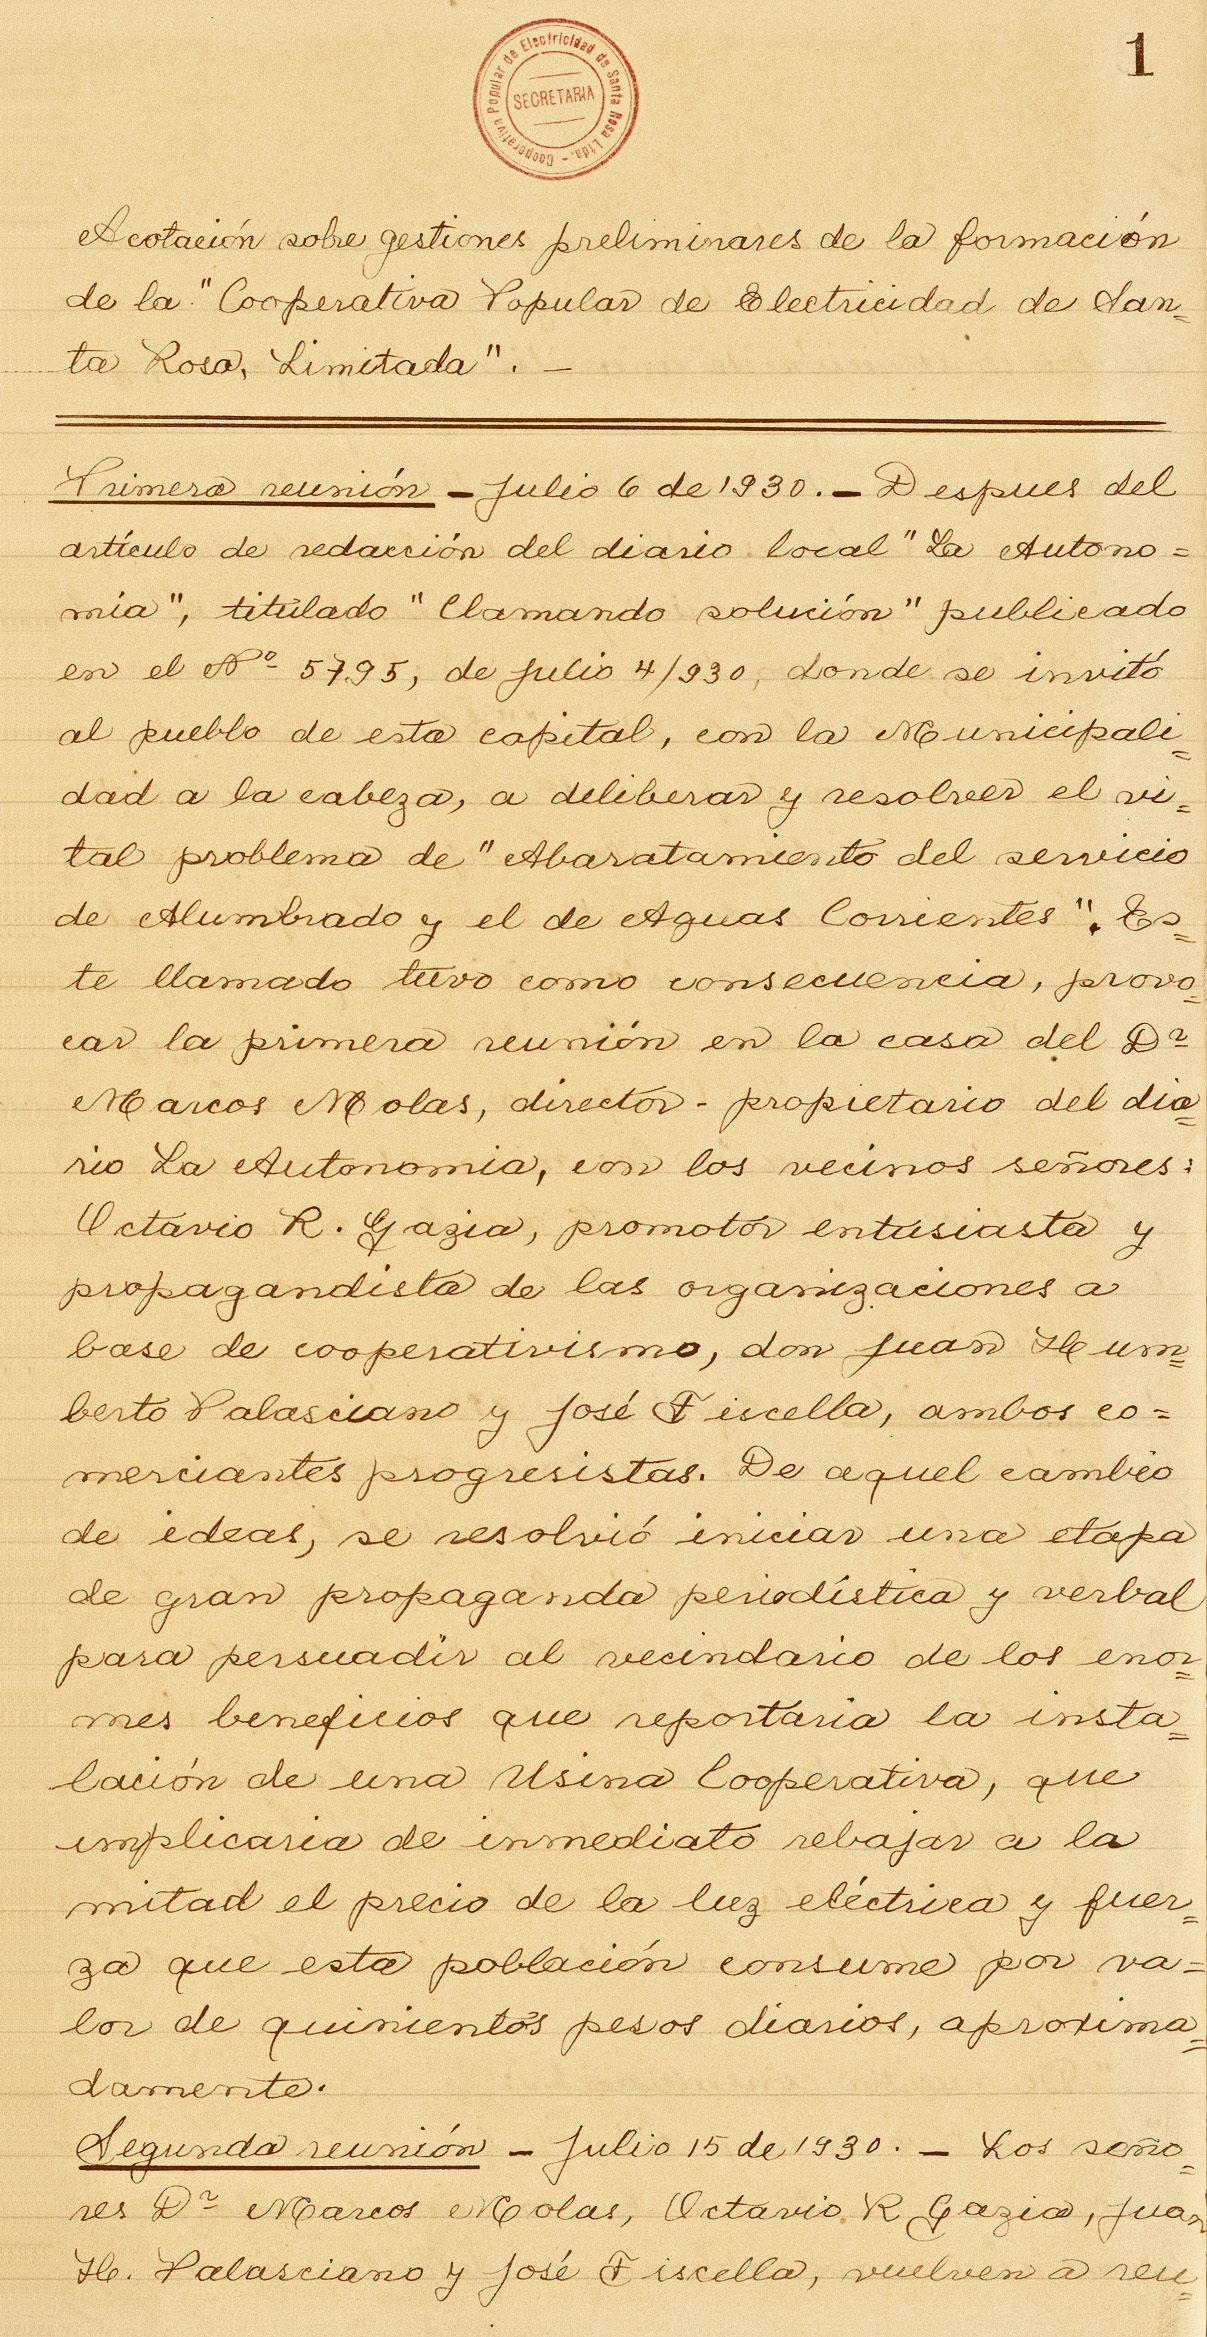 1
Cooperativa Popular de Electricidad de Santa Rosa Ltda. -
SECRETARIA
Acotación sobre gestiones preliminares de la formación
de la "Cooperativa Popular de Electricidad de San=
ta Rosa, Limitada". —
Primera reunión – Julio 6 de 1930. – Despues del
artículo de redacción del diario local "La Autono=
mía", titulado "Clamando solución" publicado
en el Nº 5795, de julio 4/930, donde se invitó
al pueblo de esta capital, con la Municipali=
dad a la cabeza, a deliberar y resolver el vi=
tal problema de "Abaratamiento del servicio
de Alumbrado y el de Aguas Corrientes". Es=
te llamado tuvo como consecuencia, provo=
car la primera reunión en la casa del Dr
Marcos Molas, director-propietario del dia=
rio La Autonomia, con los vecinos señores:
Octavio R. Gazia, promotor entusiasta y
propagandista de las organizaciones a
base de cooperativismo, don Juan Hum=
berto Palasciano y José Fiscella, ambos co=
merciantes progresistas. De aquel cambio
de ideas, se resolvió iniciar una etapa
de gran propaganda periodística y verbal
para persuadir al vecindario de los enor=
mes beneficios que reportaría la insta=
lación de una Usina Cooperativa, que
implicaria de inmediato rebajar a la
mitad el precio de la luz eléctrica y fuer=
za que esta población consume por va=
lor de quinientos pesos diarios, aproxima=
damente.
Segunda reunión – Julio 15 de 1930. – Los seño=
res Dr Marcos Molas, Octavio R Gazia, Juan
H. Palasciano y José Fiscella, vuelven a reu=